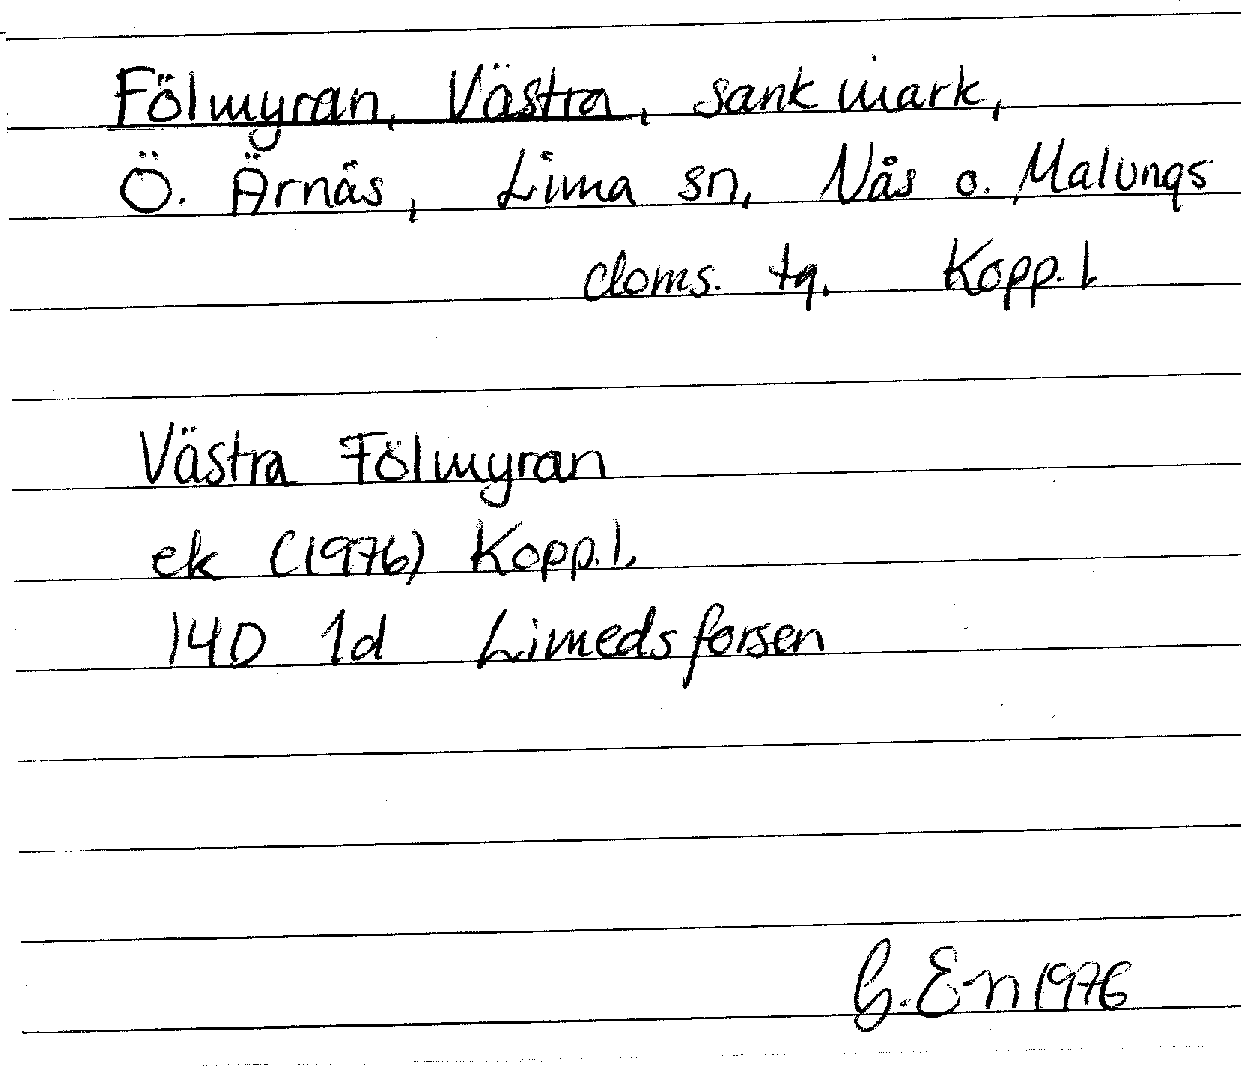 Fölmyran, Västra, sank mark,
Ö. Ärnäs, Lima sn, Nås o. Malungs
doms. tg. Kopp.l
Västra Fölmyran
ek (1976) Kopp.l.
14D 1d Limedsforsen
G. En 1976